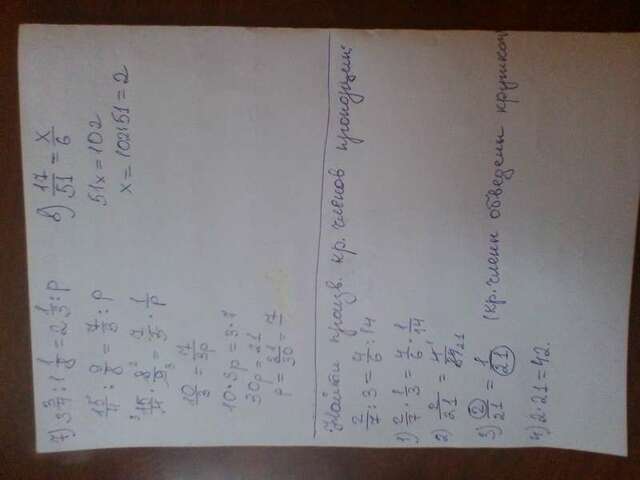 7) 3 3/4 : 1 1/8 = 2 1/3 : p
15/4 : 9/8 = 7/3 : p
15/4 · 8/9 = 7/3 · 1/p
10/3 = 7/3p
10·3p = 3·7
30p = 21
p = 21/30 = 7
8) 17/51 = x/6
51x = 102
x = 102:51 = 2
Найти произв. кр. членов пропорции:
2/7 : 3 = 4/6 : 14
1) 2/7 · 1/3 = 4/6 · 1/14
2) 2/21 = 4 1/84 21
3) 2/21 = 1/21 (кр. члены обведены кружком
4) 2·21 = 42.